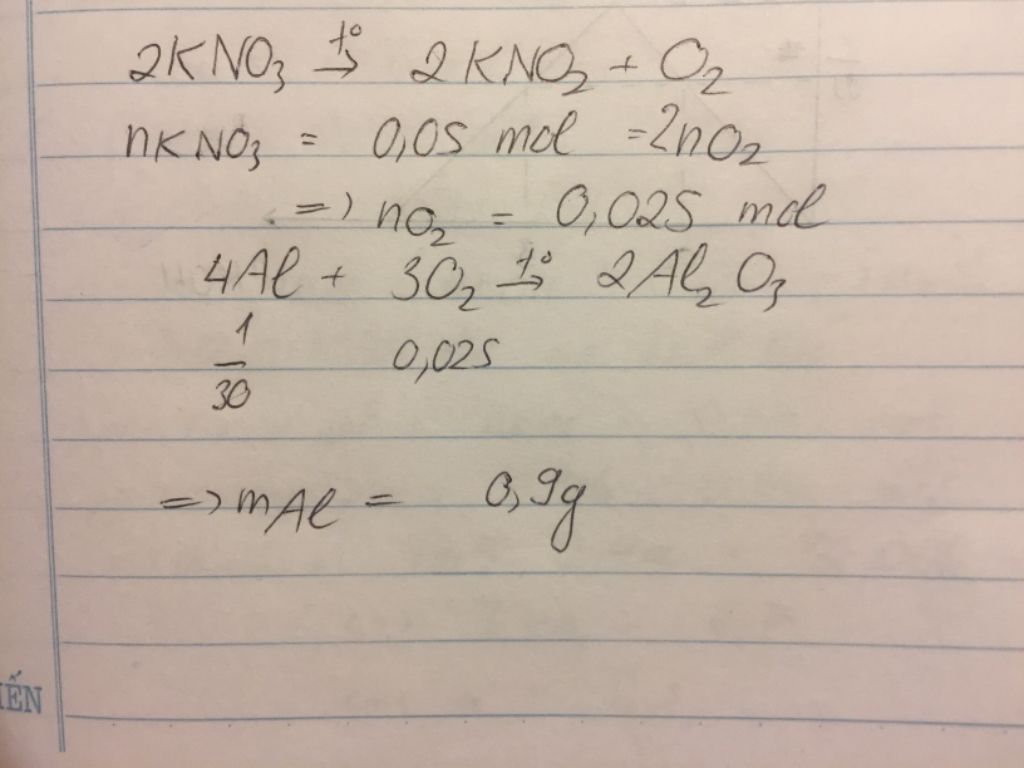 2KNO₃ →(t°) 2KNO₂ + O₂
nKNO₃ = 0,05 mol = 2nO₂
=> nO₂ = 0,025 mol
4Al + 3O₂ →(t°) 2Al₂O₃
1/30 0,025
=> mAl = 0,9g
IẾN